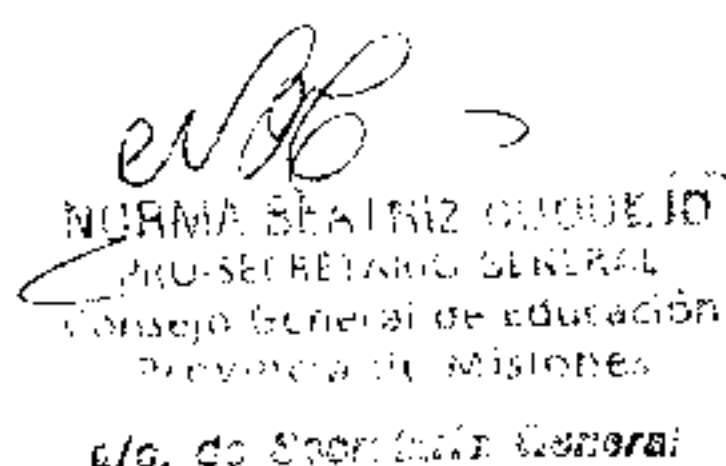 NORMA BEATRIZ
PRO-SECRETARIO GENERAL
Consejo General de Educación
Provincia de Misiones
a/c. de Secretaría General